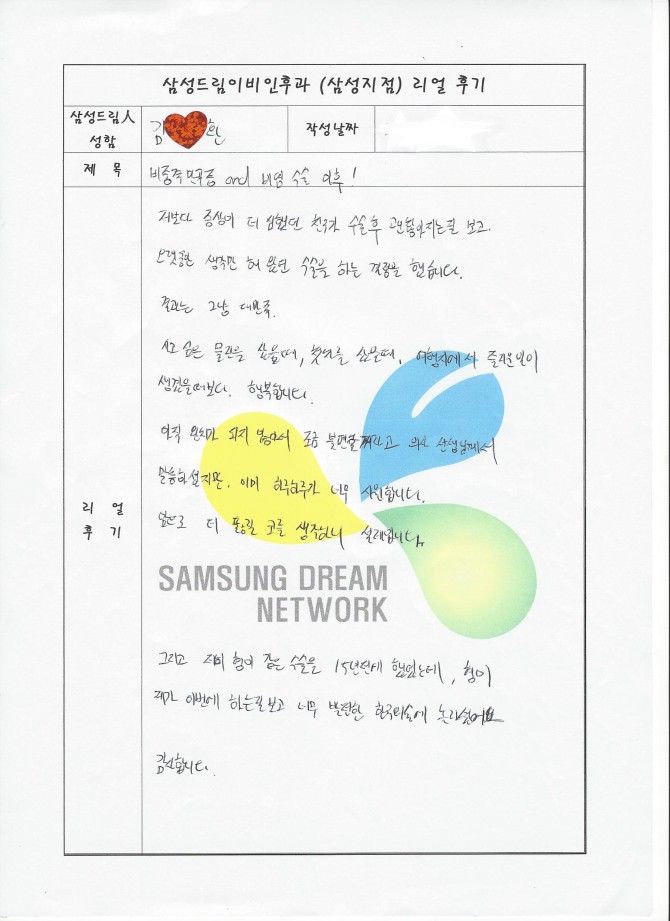 삼성드림이비인후과 (삼성지점) 리얼 후기
삼성드림人
성함
김 환
작성날짜
제 목
비중격만곡증 and 비염 수술 이후!
저보다 증상이 더 심했던 친구가 수술후 고만황아지는걸 보고
오랫동안 생각만 해 왔던 수술을 하는 결정을 했습니다.
결과는 그냥 대만족.
사고 싶은 물건을 샀을때, 첫차를 샀을때, 여행지에서 즐거운일이
생겼을때보다. 행복합니다.
아직 완치가 되지 않아서 조금 불편할꺼라고 의사 선생님께서
말씀하셨지만. 이미 하루하루가 너무 시원합니다.
앞으로 더 뚫릴 코를 생각하니 설레입니다.
리 얼
후 기
SAMSUNG DREAM
NETWORK
그리고 저희 형이 같은 수술을 15년전에 했었는데, 형이
제가 이번에 하는걸보고 너무 발전한 한국의술에 놀라셨어요
감사합니다.